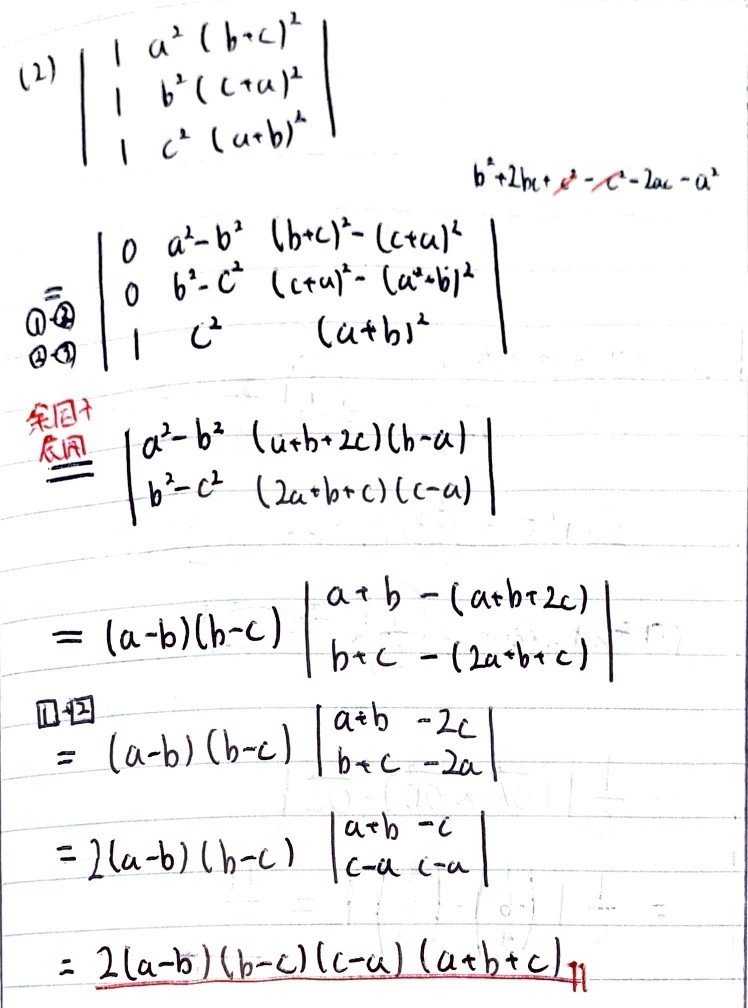 (2) | 1 a² (b+c)² |
| 1 b² (c+a)² |
| 1 c² (a+b)² |
b²+2bc+c²-c²-2ac-a²
| 0 a²-b² (b+c)²-(c+a)² |
= | 0 b²-c² (c+a)²-(a+b)² |
①-② | 1 c² (a+b)² |
②-③
余因子
展開
= | a²-b² (a+b+2c)(b-a) |
| b²-c² (2a+b+c)(c-a) |
= (a-b)(b-c) | a+b -(a+b+2c) |
| b+c -(2a+b+c) |
1+2
= (a-b)(b-c) | a+b -2c |
| b+c -2a |
= 2(a-b)(b-c) | a+b -c |
| c-a c-a |
= 2(a-b)(b-c)(c-a)(a+b+c)